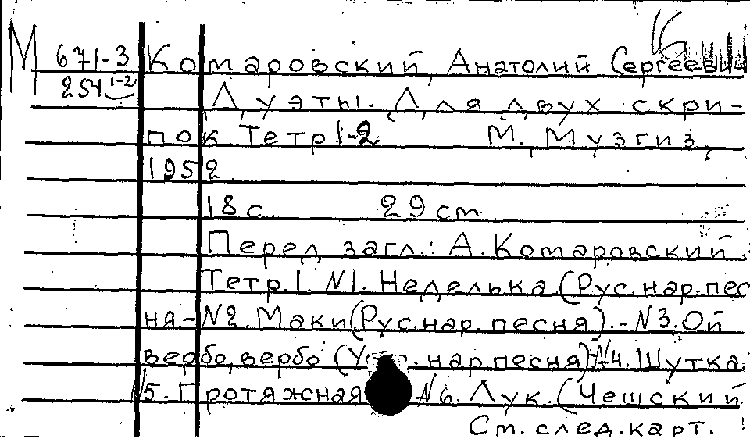 М 671-3 Комаровский, Анатолий Сергеевич
254 1-2 Дуэты. Для двух скри-
пок Тетр1-2 М., Музгиз,
1952
18 с. 29 см
Перед загл.: А. Комаровский
Тетр. 1. №1. Неделька (Рус. нар. пес
ня-№2. Маки (Рус. нар. песня).-№3. Ой
вербо, вербо (Укр. нар. песня)-№4. Шутка
№5. Протяжная №6. Лук. (Чешский
См. след. карт.